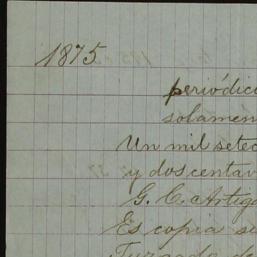 1875.
periódic
solamen
Un mil setec
y dos centav
G. C. Artiga
Es copia
Juzgado de